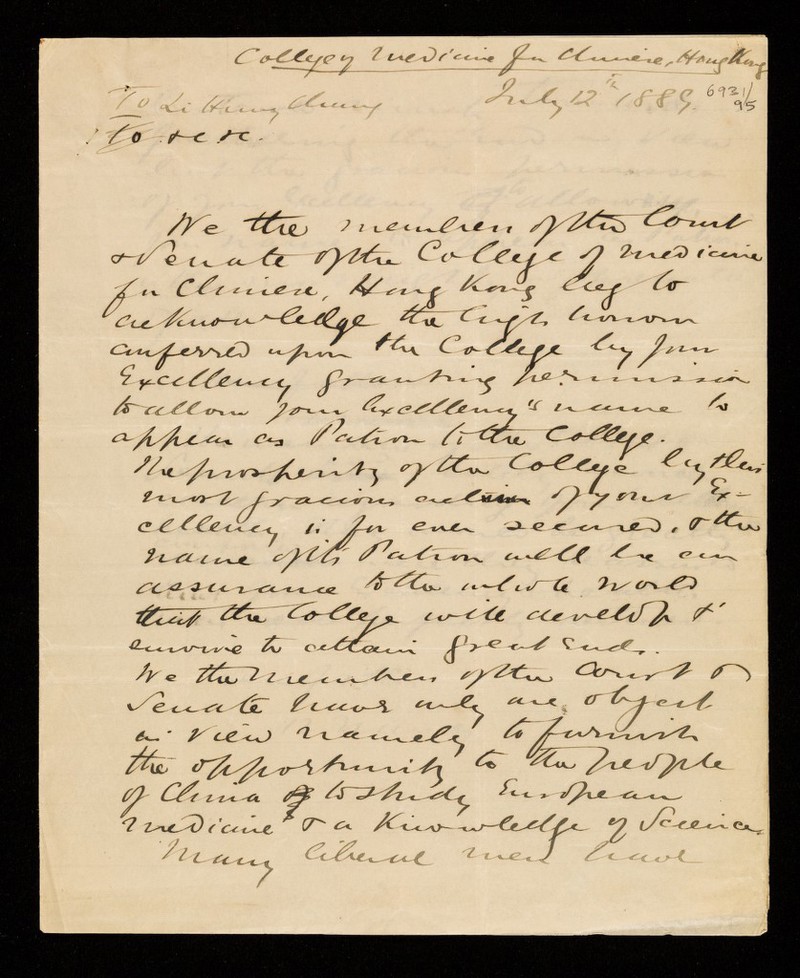 College of Medicine for Chinese, Hong Kong
July 12th 1889.
6931/95
To Li Hung Chang
To &c &c.
We the members of the Court
& Senate of the College of Medicine
for Chinese, Hong Kong beg to
acknowledge the high honour
conferred upon the College by your
Excellency granting permission
to allow your Excellency's name to
appear as Patron to the College.
The prosperity of the College by this
most gracious action of your Ex-
cellency is for ever secured, & the
name of its Patron will be an
assurance to the whole world
that the College will develop &
survive to attain great ends.
We the members of the Court &
Senate have only one object
in view namely to furnish
the opportunity to the people
of China to study European
medicine & a knowledge of Science.
Many liberal men have